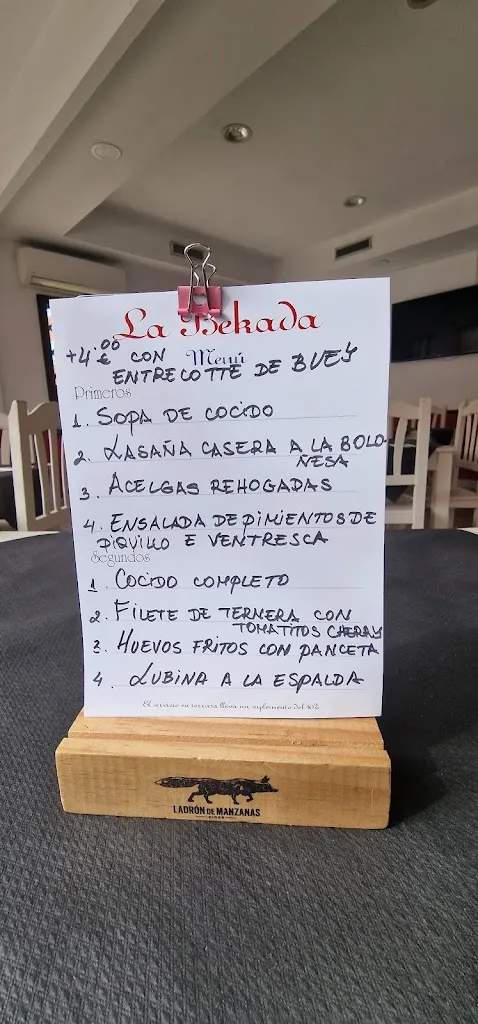 La Bekada
+4.00 € CON Menú
ENTRECOTTE DE BUEY
Primeros
1. SOPA DE COCIDO
2. LASAÑA CASERA A LA BOLO-
ÑESA
3. ACELGAS REHOGADAS
4. ENSALADA DE PIMIENTOS DE
PIQUILLO E VENTRESCA
Segundos
1. COCIDO COMPLETO
2. FILETE DE TERNERA CON
TOMATITOS CHERRY
3. HUEVOS FRITOS CON PANCETA
4. LUBINA A LA ESPALDA
El servicio en terraza lleva un suplemento del 10%
LADRÓN DE MANZANAS